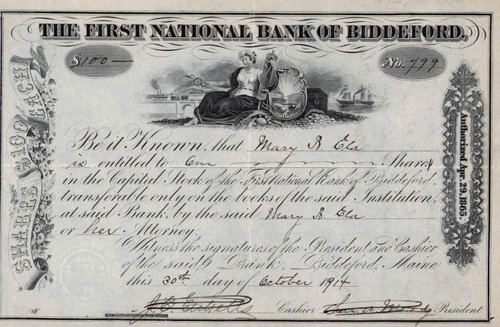 THE FIRST NATIONAL BANK OF BIDDEFORD.
$100— No. 799
SHARES $100 EACH
Authorized Apr. 29, 1865.
Be it Known, that Mary B Ela
is entitled to One Shares
in the Capital Stock of the First National Bank of Biddeford,
transferable only on the books of the said Institution,
at said Bank, by the said Mary B Ela
or her Attorney.
Witness the signatures of the President and Cashier
of the said Bank. Biddeford, Maine
this 30th day of October 1914
Cashier President